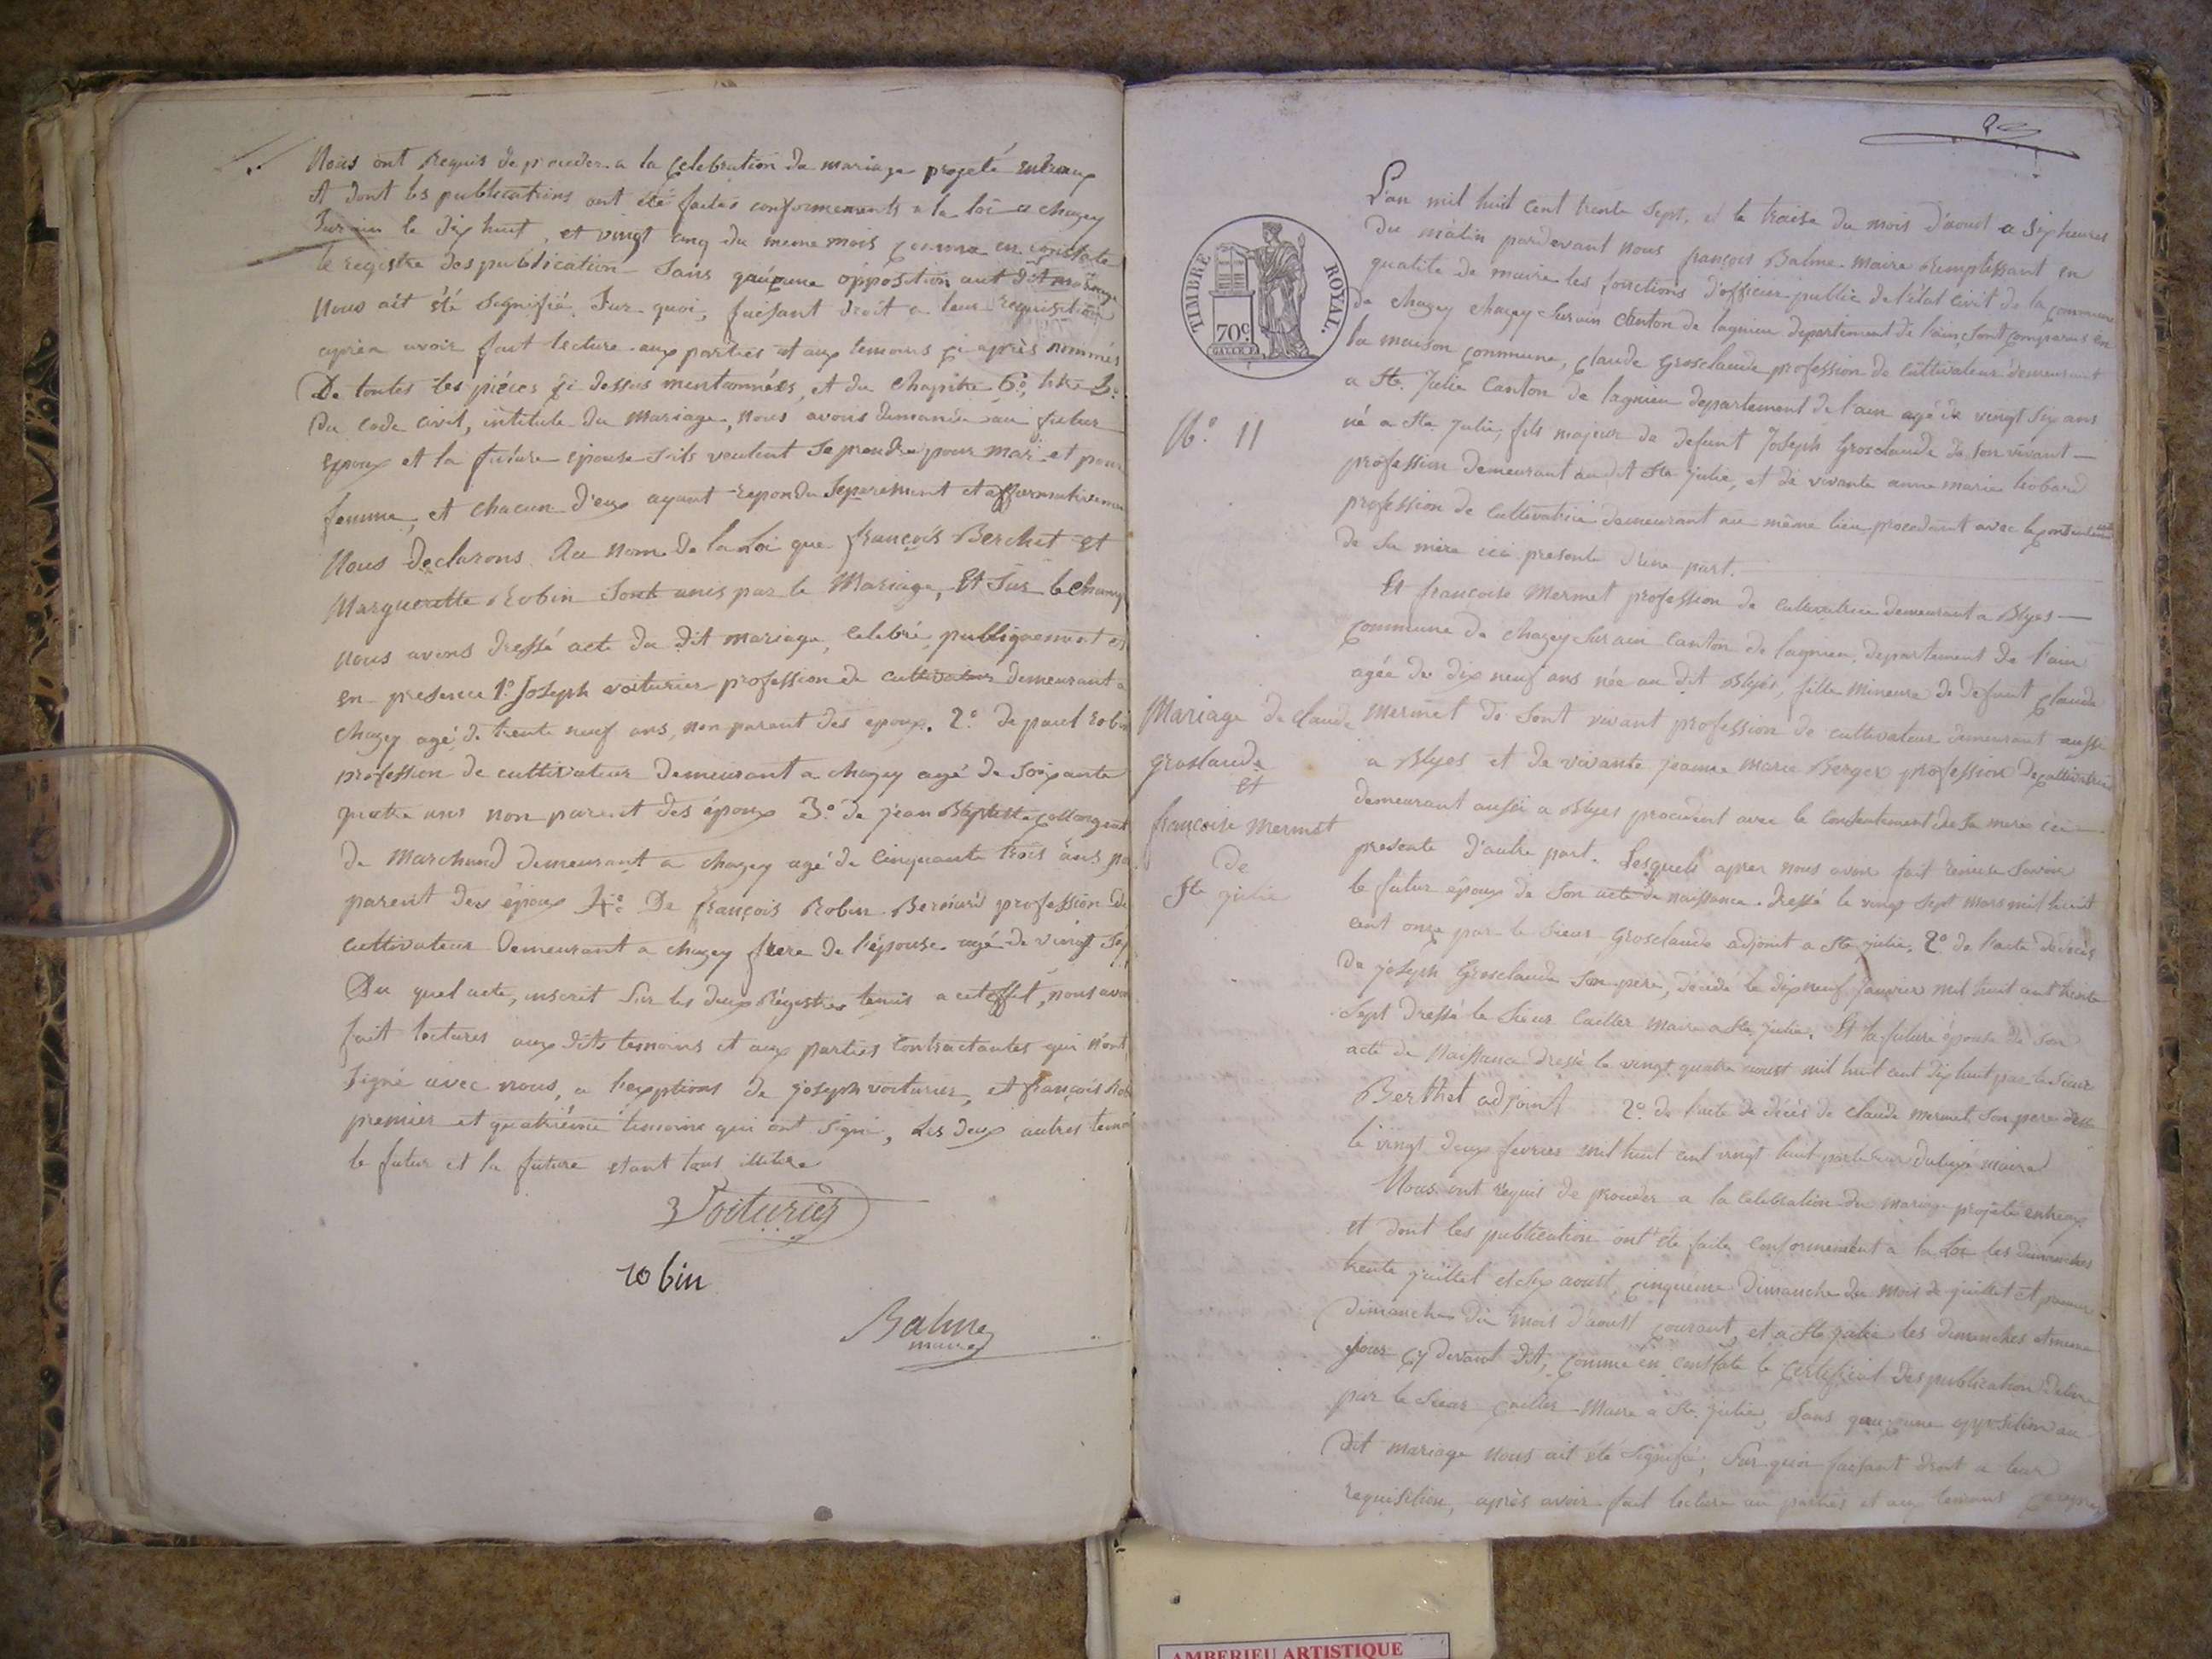 Nous ont Requis de proceder a la Celebration du mariage projeté entreaux
et dont les publications ont été faites conformements a la loi a chazey
Surain le dix huit, et vingt cinq du meme mois comme en constate
le registre des publication Sans qu'aucune opposition aut dit mariage
Nous ait été Signifié. Sur quoi, faisant droit a leur requisition
après avoir fait lecture aux parties et aux temoins ci après nommés
De toutes les piéces ci dessus mentionnées, et du chapitre 6e, titre
Du Code Civil, intitule du Mariage, nous avons demandé au futur
epoux et la future epouse S'ils veulent Se prendre pour mari et pour
femme, et chacun d'eux ayant repondu Separement et affirmativeme
Nous Declarons Au Nom De la Loi que françois Berchet et
Marguerette Robin Sont unis par le Mariage, Et Sur le champ
nous avons dressé acte du dit mariage, Celebré, publiquement et
en presence 1º Joseph voiturier profession de cultivateur demeurant a
chazey agé de trente neuf ans, non parent des epoux. 2º de paul Robin
profession de cultivateur Demeurant a chazey agé de Soixante
quatre ans non parent des époux 3º de jean Baptiste
de Marchand demeurant a chazey agé de Cinquante trois ans pa
parent des époux 4º De françois Robin Bernard profession de
cultivateur Demeurant a chazey frere de l'épouse agé de vingt Sep
Du quel acte, inscrit Sur les deux Régistres tenus a cet effet, nous avon
fait lectures aux dits temoins et aux parties Contractantes qui n'ont
Signé avec nous, a l'exeptions de joseph voiturier, et françois Rob
premier et quatriéme temoins qui ont Signé, Les deux autres temo
le futur et la future etant tous illitere
Voiturier
robin
Balme
maire
TIMBRE ROYAL.
70c
Nº 11
Mariage de Claude
Groslaude
et
françoise Mermet
de
Ste julie
L'an mil huit Cent trente Sept, et le traise du mois d'aout a Six heures
Du matin pardevant Nous françois Balme Maire Remplissant en
qualité de maire les fonctions d'officier public de l'état Civil de la commune
de chazey chazey Surain Canton de lagnieu departement de l'ain Sont comparus en
la maison Commune, Claude Grosclaude profession de Cultivateur demeurant
a Ste. Julie Canton de lagnieu departement de l'ain agé de vingt Six ans
né a Ste Julie, fils majeur de defunt Joseph Grosclaude de Son vivant
profession demeurant au dit Ste Julie, et de vivante anne marie
profession de Cultivatrice demeurant au même lieu procedant avec le consentement
de Sa mère ici presente d'une part.
Et francoise Mermet profession de Cultivatrice demeurant a Blyes
Commune de chazey Surain Canton de lagnieu, departement de l'ain
agée de dix neuf ans née au dit Blyes, fille Mineure de defunt Claude
Mermet de Sont vivant profession de cultivateur demeurant aussi
a Blyes et de vivante jeanne Marie Berger profession de cultivatrice
demeurant aussi a Blyes procedent avec le Consentement de Sa mere ici
presente d'autre part. Lesquels apres nous avoir fait remise Savoir
le futur époux de Son acte de naissance dressé le vingt Sept mars mil huit
cent onze par le Sieur Grosclaude adjoint a Ste julie. 2º de l'acte de décès
De joseph Grosclaude Son pere, décédé le dix neuf janvier mil huit cent trente
Sept Dressé le Sieur Cailler Maire a Ste Julie. Et la future épouse de Son
acte de Naissance dressé le vingt quatre aoust mil huit cent dix huit par le Sieur
Berthet adjoint 2º de l'acte de décès de Claude Mermet Son pere dressé
le vingt deux fevrier mil huit cent vingt huit par le Sieur maire
Nous ont requis de proceder a la Celebration du mariage projeté entreaux
et dont les publication ont été faite Conformement a la Loi les dimanches
trente juillet et Six aoust, cinquieme Dimanche du mois de juillet et premier
Dimanche du mois d'aoust courant, et a Ste julie les dimanches et meme
jour cy devant dit, comme en constate le Certificat des publication delivré
par le Sieur Cailler Maire a Ste. julie, Sans qu'aucune opposition au
Dit mariage Nous ait été Signifié, Sur quoi faisant droit a leur
requisition, après avoir fait lecture au parties et aux temoins
AMBERIEU ARTISTIQUE